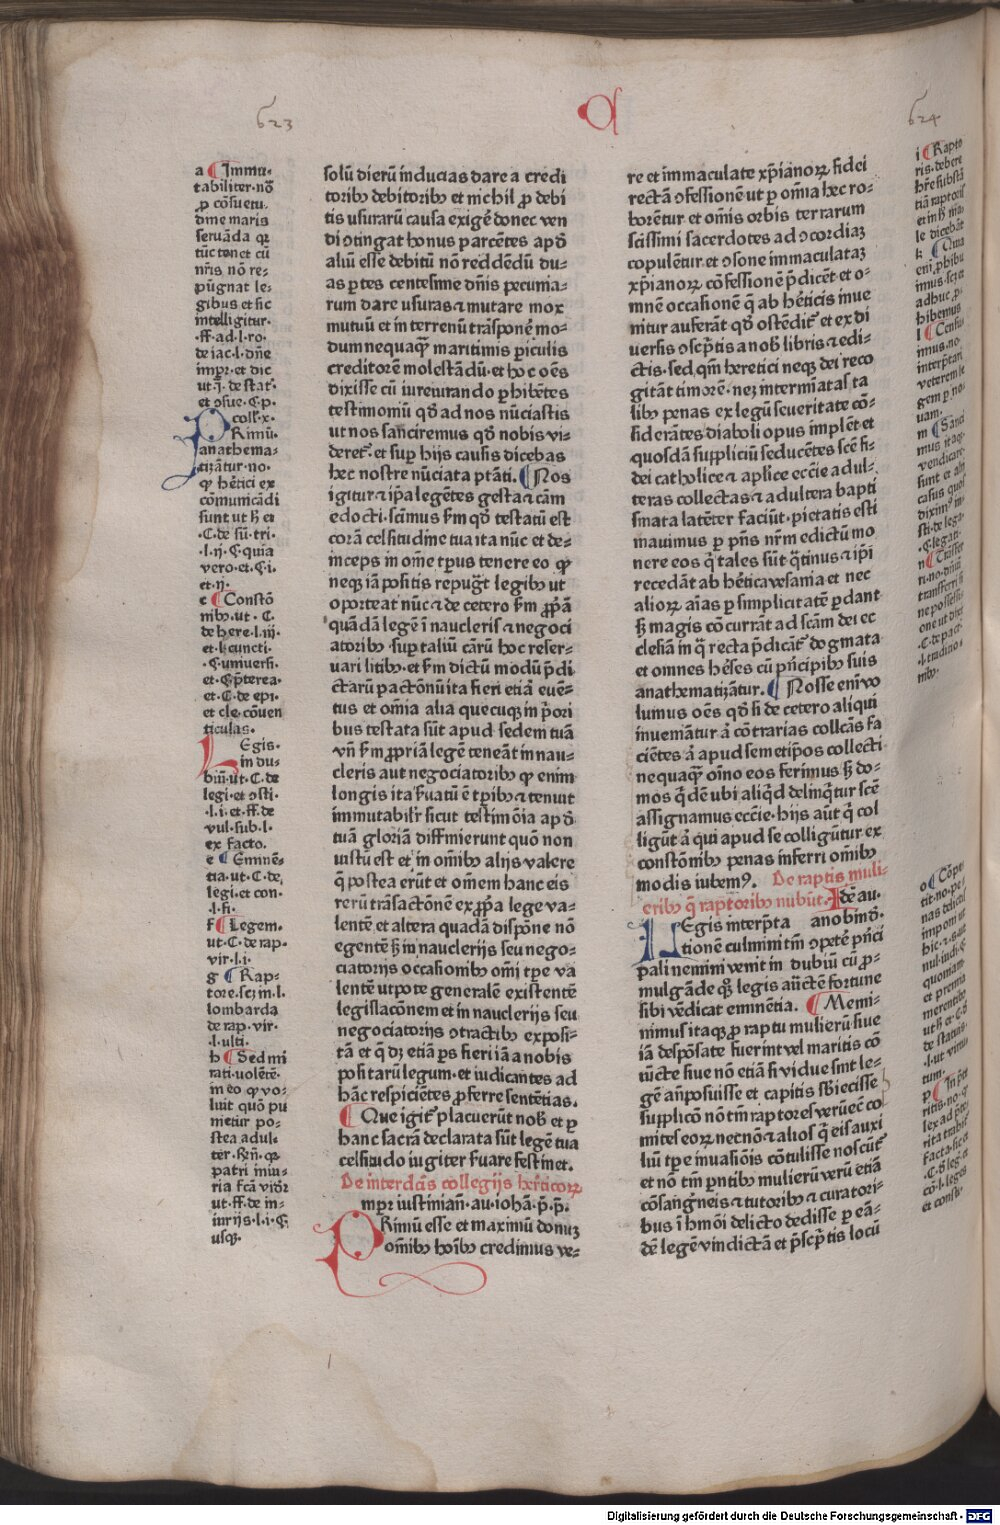 623
624
a Immu-
tabiliter·nō
ꝓ cōsuetu-
dine maris
seruāda qꝛ
tūc tenet cū
nr̄is nō re-
pūgnat le-
gibus et sic
intelligitur·
·ff·ad·l·ro·
de iac·l·dn̄e
impr̄·et dic
et ɔsue·C·p·
coll·x·
PRimū·
anathema-
tizātur·no·
ꝙ hētici ex
cōmunicādi
sunt ut h̄ et
·C·de sū·tri·
·l·ij·C·quia
vero·et·C·i·
et·ij·
c Constō
nibꝫ·ut·C·
de here·l·iij·
et·l·cuncti·
·C·uniuersi·
et·C·p̄terea·
et·C·de epi·
et cle·cōuen
ticulas·
LEgis·
in du-
biū·ut·C·de
legi·et ɔsti·
·l·i·et·ff·de
vul·sub·l·
ex facto·
e Eminē-
tia·ut·C·de
legi·et con·
·l·fi·
f Legem·
ut·C·de rap·
vir·l·i·
g Rap-
tore·scꝫ in·l·
lombarda
de rap·vir·
·l·ulti·
h Sed mi
rati·uolētē·
in eo ꝙ vo-
luit quō pu
nietur po-
stea adul-
ter·Rn̄·qꝛ
patri iniu-
ria fcā vid̄r
ut·ff·de in-
iurijs·l·i·C·
usqꝫ·
solū dierū inducias dare a credi
toribꝫ debitoribꝫ et nichil ꝓ debi
tis usurarū causa exigē donec ven
di ɔtingat honus parcētes apd̄
aliū esse debitū nō reddēdū du-
as ꝑtes centesime dn̄is pecunia-
rum dare usuras ⁊ mutare mox
mutuū et in terrenū trāsponē mo-
dum nequaqꝫ maritimis ꝑiculis
creditorē molestādū·et hoc oēs
dixisse cū iureiurando ꝑhibētes
testimoniū qd̄ ad nos nūciastis
ut nos sanciremus qd̄ nobis vi-
deret᷑·et suꝑ hijs causis dicebas
hec nostre nūciata ptāti· Nos
igitur ⁊ ip̄a legētes gesta ⁊ cām
edocti·scimus s̄m qd̄ testatū est
corā celsitudine tua ita nūc et de-
inceps in om̄e tꝑus tenere eo ꝙ
neqꝫ iā positis repuḡt legibꝫ ut
oporteat nūc ⁊ de cetero s̄m ꝓp̄ā
quādā legē ī naucleris ⁊ negoci
atoribꝫ suꝑ taliū cārū hoc reser-
uari litibꝫ·et s̄m dictū modū p̄di
ctarū pactōnū ita fieri etiā euē-
tus et om̄ia alia quecūqꝫ in p̄ori
bus testata sūt apud sedem tuā
vn̄ s̄m ꝓpriā legē teneāt in nau-
cleris aut negociatoribꝫ ꝙ enim
longis ita s̄uatū ē tꝑibꝫ ⁊ tenuit
immutabilr̄ sicut testimōia apd̄
tuā gloriā diffinierunt quō non
iustū est et in om̄ibꝫ alijs valere
q̄ postea erūt et om̄em hanc eis
rerū trāsactōnē ex ꝓp̄a lege va-
lentē·et altera quadā dispōne nō
egentē h̄ in nauclerijs seu nego-
ciatorijs occasionibꝫ om̄i tꝑe va
lentē utpote generalē existentē
legislacōnem et in nauclerijs seu
negociatorijs ɔtractibꝫ exposi-
tā et q̄ dꝫ etiā ꝑs fieri iā a nobis
positarū legum·et iudicantes ad
hāc respiciētes ꝓferre sentētias·
Que igit᷑ placuerūt nob̄ et ꝑ
hanc sacrā declarata sūt legē tua
celsitudo iugiter s̄uare festinet·
De interd̄cis collegijs her̄ticoꝝ
impr̄ iustinian̄·au·iohā·p̄·p̄·
PRimū esse et maximū bonuꝫ
om̄ibꝫ hoībꝫ credimus ve-
re et immaculate xp̄ianoꝝ fidei
rectā ɔfessionē ut ꝑ om̄ia hec ro-
borētur et om̄is orbis terrarum
scīssimi sacerdotes ad ɔcordiaꝫ
copulētur·et ɔsone immaculataꝫ
xp̄ianoꝝ cōfessionē p̄dicēt·et o-
mnē occasionē q̄ ab hēticis inue
nitur auferāt qd̄ ostēdit᷑ et ex di
uersis ɔscp̄tis a nob̄ libris ⁊ edi-
ctis·sed qm̄ heretici neqꝫ dei reco
gitāt timorē·neꝫ interminatas ta
libꝫ penas ex legū seueritate cō-
siderātes diaboli opus implēt et
quosdā suppliciū seducētes scē fi-
dei catholice ⁊ ap̄lice eccie adul-
teras collectas ⁊ adultera bapti
smata latēter faciūt·pietatis esti
mauimus ꝑ p̄ns nr̄m edictū mo
nere eos q̄ tales sūt q̄tinus ⁊ ip̄i
recedāt ab hētica vesania et nec
alioꝝ aīas ꝑ simplicitatē ꝑdant
s̄ magis cōcurrāt ad scām dei ec
clesiā in q̄ recta p̄dicāt᷑ dogmata
et omnes hēses cū p̄ncipibꝫ suis
anathematizātur· Nosse enī vo
lumus oēs qd̄ si de cetero aliqui
inueniātur ā cōtrarias collcās fa
ciētes ā apud semetip̄os collecti
nequaqꝫ oīno eos ferimus s̄ do-
mos q̄dē ubi aliqd̄ delinq̄tur scē
assignamus eccie·hijs aūt q̄ col
ligūt ā qui apud se colligūtur ex
constōnibꝫ penas inferri om̄ibꝫ
modis iubemꝰ· De raptis muli-
eribꝫ q̄ raptoribꝫ nubūt· Idē au·
LEgis interp̄ta anobind̄·
tionē culmini tm̄ ɔpetē p̄nci
pali nemini venit in dubiū cū ꝓ-
mulgāde qꝫ legis aūctē fortune
sibi vēdicat eminētia· Memi-
nimus itaqꝫ ꝓ raptu mulierū siue
iā despōsate fuerint vel maritis cō
iūcte siue nō etiā si vidue sint le-
gē an̄posuisse et capitis sb̄iecisse
supplicō nō tm̄ raptores verū ec̄ co
mites eoꝝ necnō ⁊ alios q̄ eis auxi
liū tꝑe inuasiōis cōtulisse noscūt᷑
et nō tm̄ p̄ntibꝫ mulierū verū etiā
cōsangneis ⁊ tutoribꝫ ⁊ curatori-
bus ī hm̄oi delicto dedisse ꝑ eā-
dē legē vindictā et p̄scp̄tis locū
i Rapto
ris·debere
k Quia
enī ꝓhibu
imus·scꝫ et
adhuc ꝓ-
hibemus
l Censu
imus·no·
interp̄tari
veterem le
gem ꝑ no-
uam·
m Sanci
mus itaqꝫ
vendicare·
sunt et alij
casus quos
diximꝰ in·
·C·legati·
n Trāsfer
ri·no·dn̄iū
transferri si
ne possessi-
one ut dixi
·C·de pact·
·l·traditio-
nibꝫ·
o Cōpe
tit·no·pe-
nas delicti
imponi ut
quoniam
et premia
merentibꝫ
de statuis·
·l·ut virtu
tum·
lex ad p̄te
rita trahit᷑
facta·sic et
·C·d̄ leḡ·et
cō·l·leges
et consti·
Digitalisierung gefördert durch die Deutsche Forschungsgemeinschaft - DFG